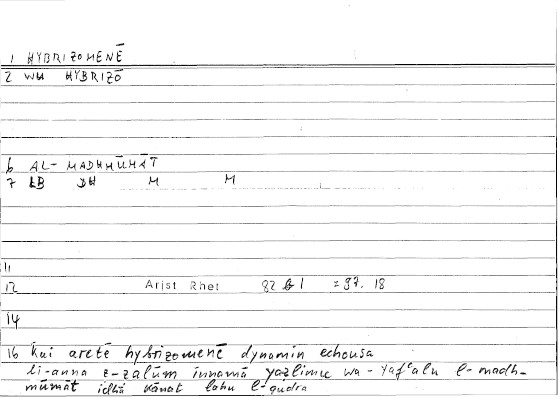 1 HYBRIZOMENĒ
2 WH HYBRIZŌ
6 AL-MADHMŪMĀT
7 LB DH M M
11
12 Arist Rhet 82 b 1 =97. 18
14
16 Kai aretē hybrizomenē dynamin echousa
li-anna z-zalūm innamā yazlimu wa-yafʿalu l-madh-
mūmāt idhā kānat lahu l-qudra